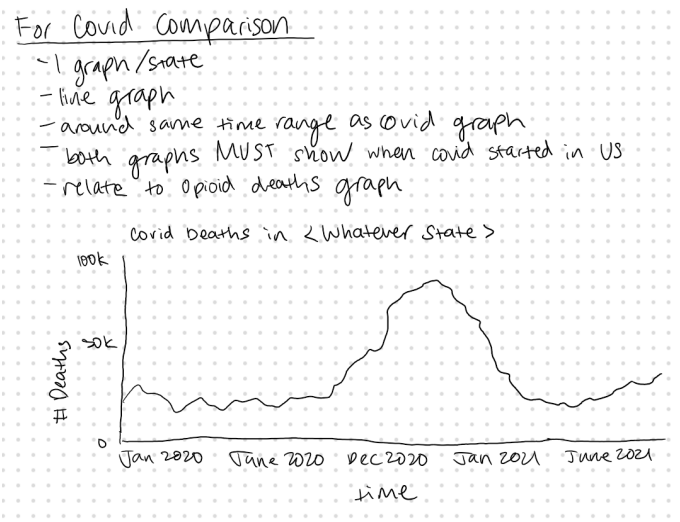 For Covid Comparison
- 1 graph/state
- line graph
- around same time range as covid graph
- both graphs MUST show when covid started in US
- relate to opioid deaths graph
Covid Deaths in <Whatever State>
100k
50k
# Deaths
0
Jan 2020 June 2020 Dec 2020 Jan 2021 June 2021
time